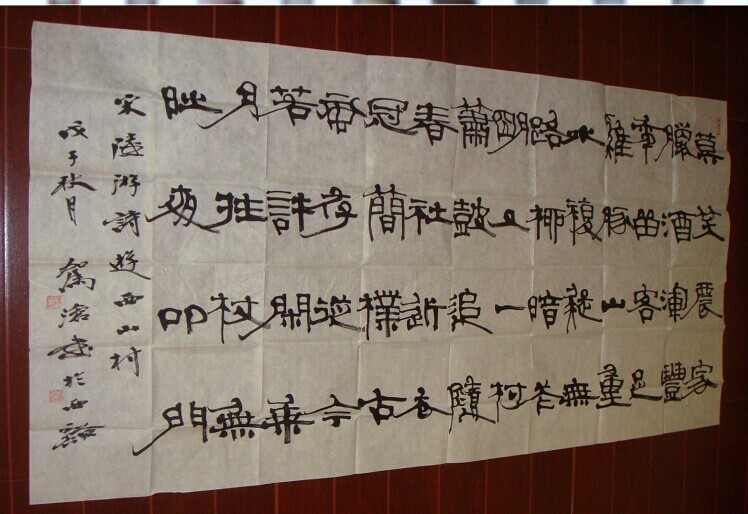 莫笑農家
臘酒渾豐
秊留客足
雞豚山重
水複疑無
路柳暗花
明又一村
蕭鼓追隨
春社近衣
冠簡樸古
風存從今
若許閑乘
月拄杖無
時夜叩門
宋陸游詩遊西山村
戊子秋月 駕滄書於西